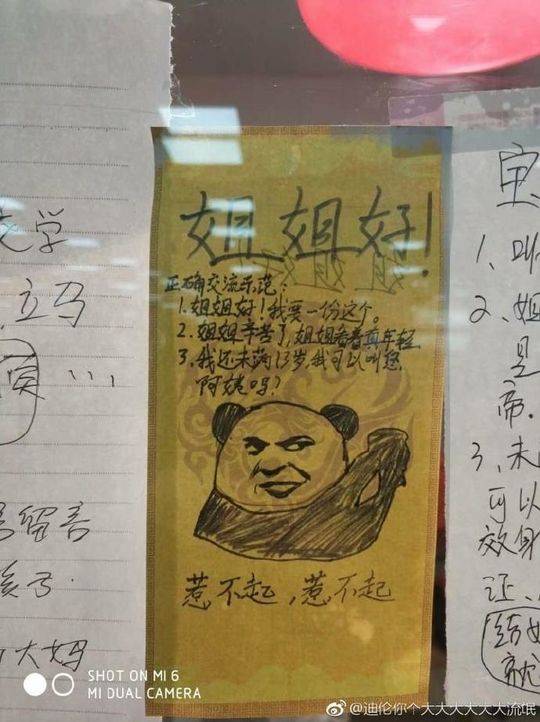 姐姐好!
正确交流示范:
1.姐姐好!我要一份这个.
2.姐姐辛苦了,姐姐看着真年轻
3.我还未满13岁,我可以叫您
阿姨吗?
惹不起,惹不起
文学
立马
员...
留言
孩子.
大妈
1.叫
2、姐
是
帝.
3、未
可以
效身
证、
结如
就
SHOT ON MI 6
MI DUAL CAMERA
@迪伦你个大大大大大大流氓